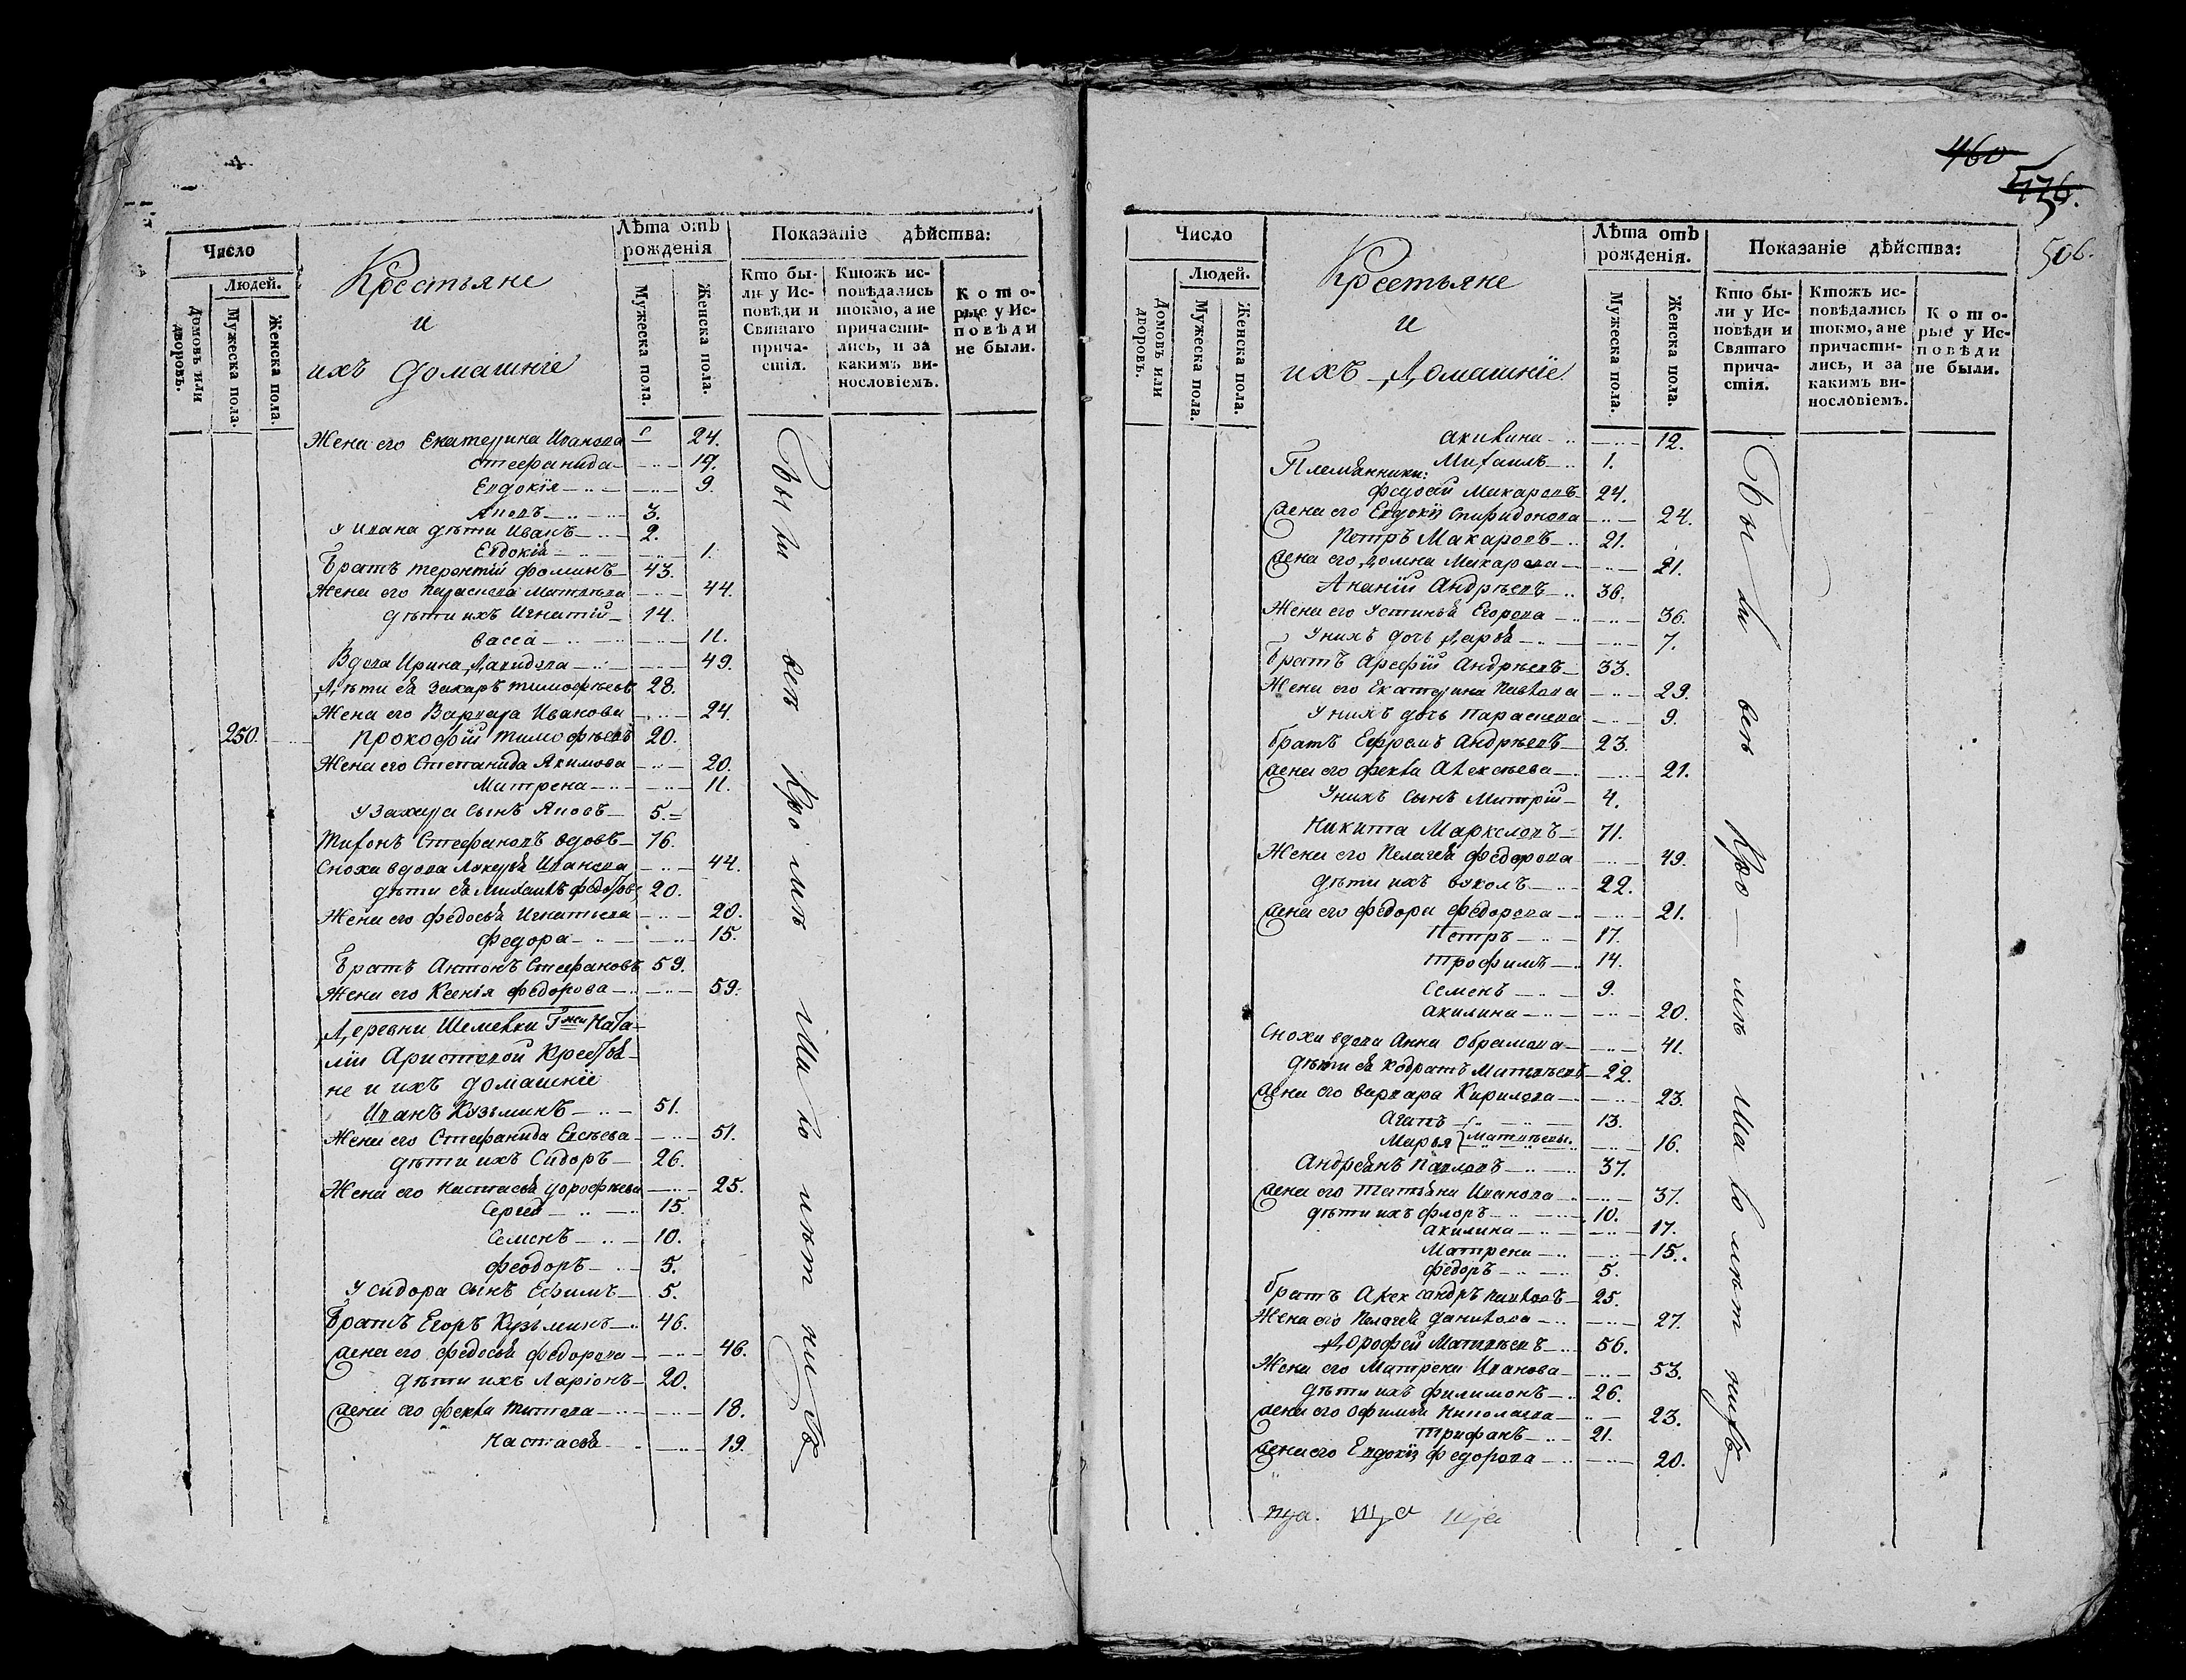 Число
Людей.
Домовъ или дворовъ.
Мужеска пола.
Женска пола.
Крестьяне
и
ихъ домашніе
Лѣта отъ рожденія
Мужеска пола.
Женска пола.
Показаніе дѣйства:
Кто бы-
ли у Ис-
повѣди и
Святаго
прича-
стія.
Ктожъ ис-
повѣдались
токмо, а не
причасти-
лись, и за
какимъ ви-
нословіемъ.
Кото-
рые у Ис-
повѣди
не были.
Жена его Екатерина Иванова 24.
Стефанида 19.
Евдокія 9.
3.
У Ивана дѣти Иванъ 2.
Евдокія 1.
Братъ Терентій Фоминъ 43.
Жена его Параскева Матвѣева 44.
Дѣти ихъ Игнатій 14.
Васса 11.
Вдова Ирина Давидова 49.
Дѣти ея Захаръ Тимофѣевъ 28.
Жена его Варвара Иванова 24.
250. Прокофій Тимофѣевъ 20.
Жена его Степанида Якимова 20.
Матрена 11.
У Захара сынъ Яковъ 5.
Тихонъ Стефановъ вдовъ 76.
Сноха вдова Лукерья Иванова 44.
Дѣти ея Михаилъ Федоровъ 20.
Жена его Федосья Игнатьева 20.
Федора 15.
Братъ Антонъ Стефановъ 59.
Жена его Ксенія Федорова 59.
Деревни Шемевки Гжи Ната-
ліи Аристовой Крестья-
не и ихъ домашніе
Иванъ Кузьминъ 51.
Жена его Стефанида Евсѣева 51.
Дѣти ихъ Сидоръ 26.
Жена его Настасья Дорофѣева 25.
Сергей 15.
Семенъ 10.
Феодоръ 5.
У Сидора сынъ Ефимъ 5.
Братъ Егоръ Кузьминъ 46.
Жена его Федосья Федорова 46.
Дѣти ихъ Ларіонъ 20.
Жена его Фекла Титова 18.
Настасья 19.
Были всѣ кромѣ малолѣтнихъ
460
506.
Число
Людей.
Домовъ или дворовъ.
Мужеска пола.
Женска пола.
Крестьяне
и
ихъ Домашніе
Лѣта отъ рожденія.
Мужеска пола.
Женска пола.
Показаніе дѣйства:
Кто бы-
ли у Ис-
повѣди и
Святаго
прича-
стія.
Ктожъ ис-
повѣдались
токмо, а не
причасти-
лись, и за
какимъ ви-
нословіемъ.
Кото-
рые у Ис-
повѣди
не были.
Акилина 12.
Михаилъ 1.
Племянники:
Федосій Макаровъ 24.
Жена его Евдокія Спиридонова 24.
Петръ Макаровъ 21.
Жена его Домна Макарова 21.
Ананій Андрѣевъ 36.
Жена его Устинья Егорова 36.
У нихъ дочь Дарья 7.
Братъ Арефій Андрѣевъ 33.
Жена его Екатерина Павлова 29.
У нихъ дочь Параскева 9.
Братъ Ефремъ Андрѣевъ 23.
Жена его Фекла Алексѣева 21.
У нихъ сынъ Митрій 4.
Никита Маркеловъ 71.
Жена его Пелагея Федорова 49.
Дѣти ихъ Вуколъ 22.
Жена его Федора Федорова 21.
Петръ 17.
Трофимъ 14.
Семенъ 9.
Акилина 20.
Сноха вдова Анна Обрамова 41.
Дѣти ея Кодратъ Матвѣевъ 22.
Жена его Варвара Кирилова 23.
Агапъ 13.
Марья Матвѣевы. 16.
Андреянъ Павловъ 37.
Жена его Татьяна Иванова 37.
Дѣти ихъ Флоръ 10.
Акилина 17.
Матрена 15.
Федоръ 5.
Братъ Александръ Павловъ 25.
Жена его Пелагея Данилова 27.
Дорофей Матвѣевъ 56.
Жена его Матрена Иванова 53.
Дѣти ихъ Филимонъ 26.
Жена его Офимья Николаева 23.
Трифанъ 21.
Жена его Евдокія Федорова 20.
Были всѣ кромѣ малолѣтнихъ